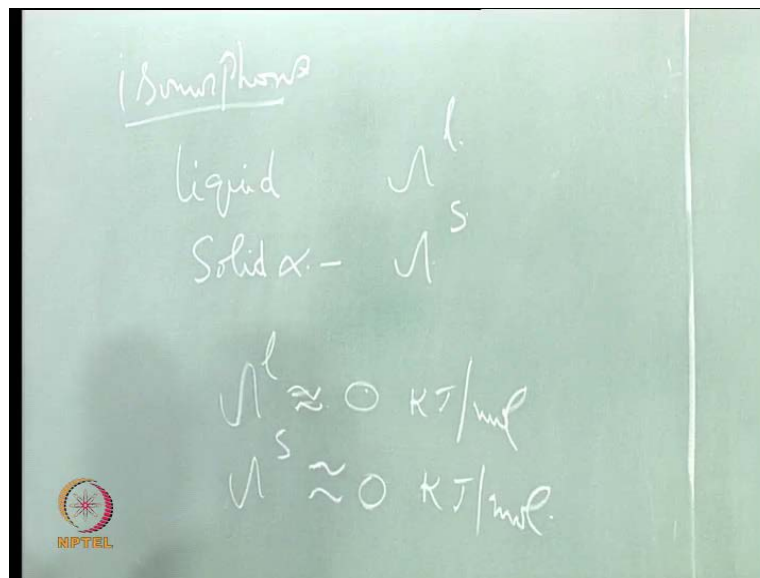 isomorphous
liquid Ω^l
Solid α - Ω^s
Ω^l ≈ 0 KJ/mol
Ω^s ≈ 0 KJ/mol.
NPTEL